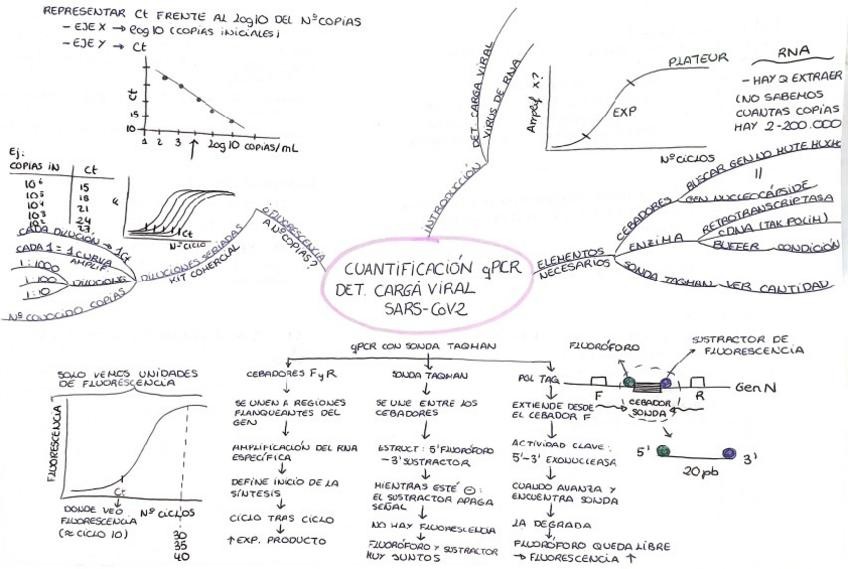 REPRESENTAR Ct FRENTE AL log10 DEL NºCOPIAS
- EJE X → log10 (COPIAS INICIALES)
- EJE Y → Ct
Ct
15
10
1 2 3 log10 COPIAS/mL
Ej:
COPIAS IN Ct
10⁶ 15
10⁵ 18
10⁴ 21
10³ 24
10² 27
Ct
Nº CICLO
CADA DILUCIÓN → 1 Ct
CADA 1 = 1 CURVA
AMPLIF.
1:1000
1:100
1:10
DILUCIONS
Nº CONOCIDO COPIAS
DILUCIONES SERIADAS
KIT COMERCIAL
¿FLUORESCENCIA
A NºCOPIAS?
INTRODUCCIÓN
DET. CARGA VIRAL
VIRUS DE RNA
Amplif x?
EXP
PLATEUR
Nº CICLOS
RNA
- HAY Q EXTRAER
(NO SABEMOS
CUANTAS COPIAS
HAY 2-200.000
CUANTIFICACIÓN qPCR
DET. CARGA VIRAL
SARS-CoV2
ELEMENTOS
NECESARIOS
CEBADORES
BUSCAR GEN NO MUTE MUCHO
=
GEN NUCLEOCÁPSIDE
ENZIMA
RETROTRANSCRIPTASA
cDNA (TAK POLIM)
BUFFER CONDICIÓN
SONDA TAQMAN VER CANTIDAD
qPCR CON SONDA TAQMAN
SOLO VEMOS UNIDADES
DE FLUORESCENCIA
FLUORESCENCIA
Ct
DONDE VEO
FLUORESCENCIA
(≈ CICLO 10)
Nº CICLOS
30
35
40
CEBADORES F y R
SE UNEN A REGIONES
FLANQUEANTES DEL
GEN
AMPLIFICACIÓN DEL RNA
ESPECÍFICA
DEFINE INICIO DE LA
SÍNTESIS
CICLO TRAS CICLO
↑ EXP. PRODUCTO
SONDA TAQMAN
SE UNE ENTRE LOS
CEBADORES
ESTRUCT: 5' FLUORÓFORO
- 3' SUSTRACTOR
MIENTRAS ESTÉ ⊖:
EL SUSTRACTOR APAGA
SEÑAL
NO HAY FLUORESCENCIA
FLUORÓFORO Y SUSTRACTOR
MUY JUNTOS
POL TAQ
EXTIENDE DESDE
EL CEBADOR F
ACTIVIDAD CLAVE:
5'-3' EXONUCLEASA
CUANDO AVANZA Y
ENCUENTRA SONDA
LA DEGRADA
FLUORÓFORO QUEDA LIBRE
→ FLUORESCENCIA ↑
FLUORÓFORO
SUSTRACTOR DE
FLUORESCENCIA
F
R
Gen N
CEBADOR
SONDA
5'
3'
20 pb